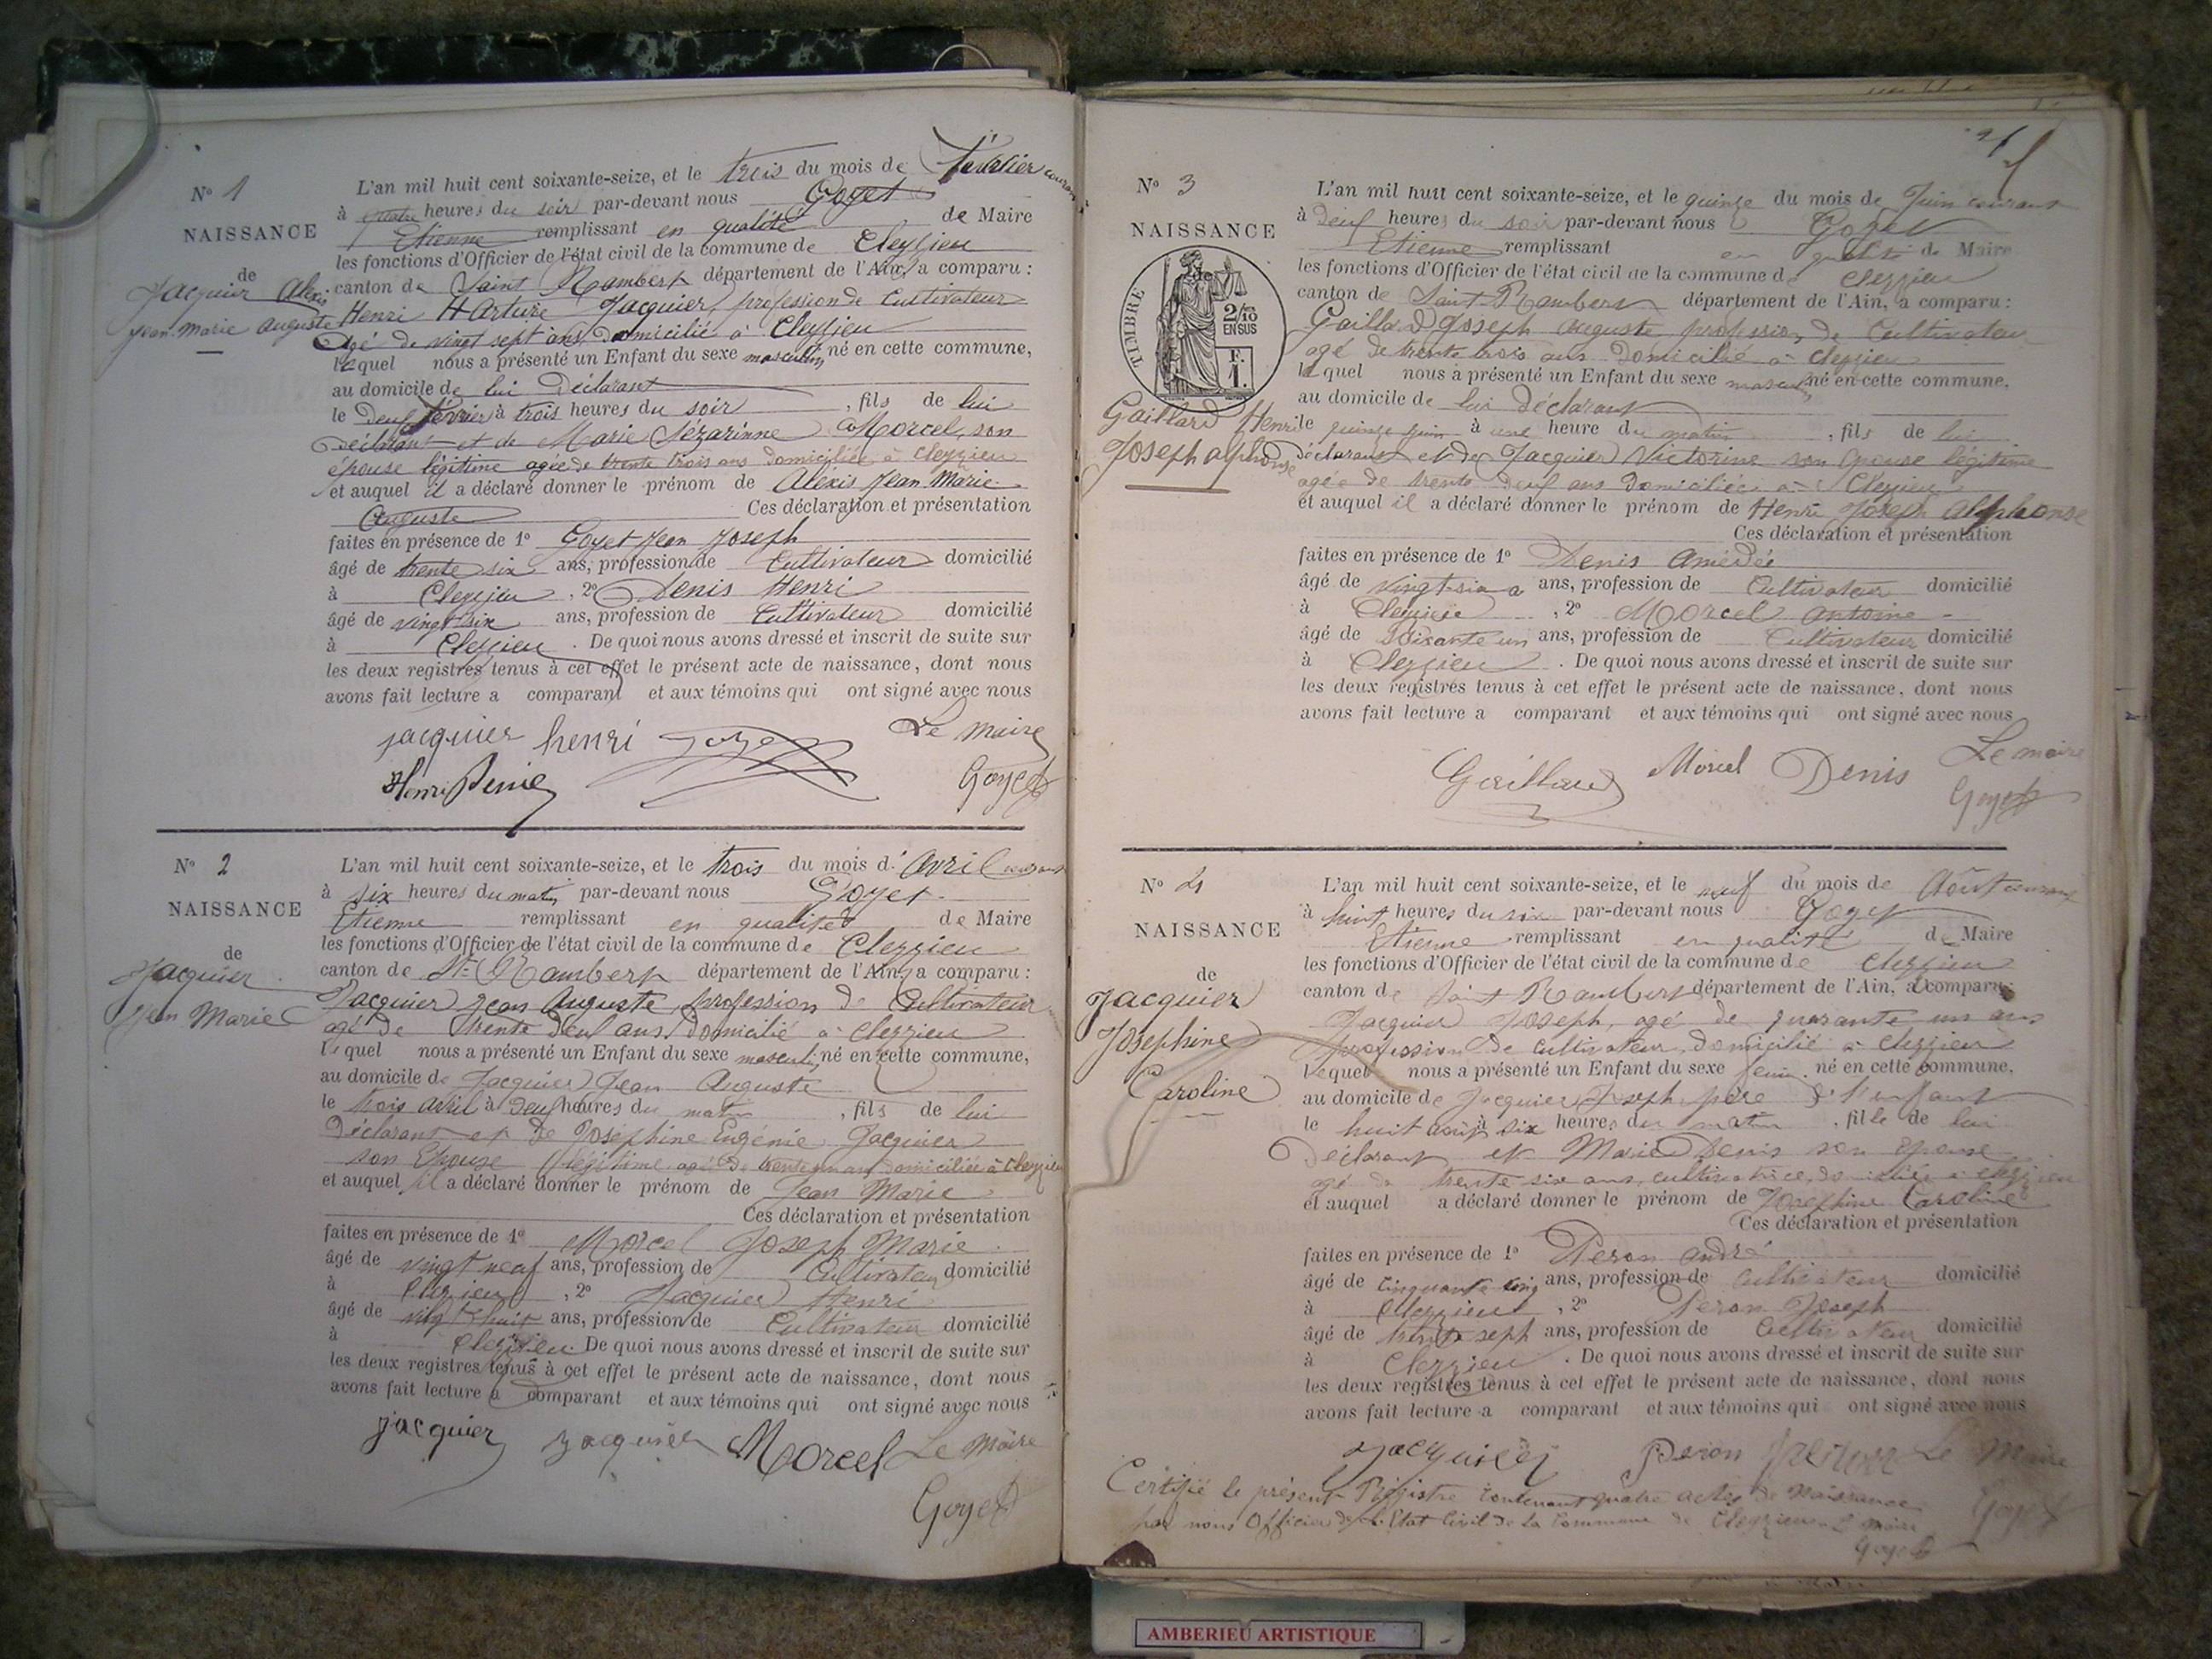 N° 1
NAISSANCE
de
Jacquier Alexis
Jean Marie Auguste
L'an mil huit cent soixante-seize, et le trois du mois de février courant
à quatre heures du soir par-devant nous Goyet
Etienne remplissant en qualité de Maire
les fonctions d'Officier de l'état civil de la commune de Cleyzieu
canton de Saint Rambert département de l'Ain, a comparu :
Henri Harture Jacquier, profession de Cultivateur
agé de vingt sept ans, domicilié à Cleyzieu
lequel nous a présenté un Enfant du sexe masculin né en cette commune,
au domicile de lui Déclarant
le deux février à trois heures du soir, fils de lui
déclarant et de Marie Sézarinne Morcel, son
épouse légitime agée de trente trois ans domiciliée à Cleyzieu
et auquel il a déclaré donner le prénom de Alexis Jean Marie
Auguste Ces déclaration et présentation
faites en présence de 1° Goyet Jean Joseph
âgé de trente six ans, profession de Cultivateur domicilié
à Cleyzieu, 2° Denis Henri
âgé de vingt six ans, profession de Cultivateur domicilié
à Cleyzieu. De quoi nous avons dressé et inscrit de suite sur
les deux registres tenus à cet effet le présent acte de naissance, dont nous
avons fait lecture a comparant et aux témoins qui ont signé avec nous
jacquier henri Goyet Le maire
Henri Denis Goyet
N° 2
NAISSANCE
de
Jacquier
Jean Marie
L'an mil huit cent soixante-seize, et le trois du mois d' avril courant
à six heures du matin par-devant nous Goyet
Etienne remplissant en qualité de Maire
les fonctions d'Officier de l'état civil de la commune de Clezzieu
canton de St Rambert département de l'Ain, a comparu :
Jacquier Jean Auguste, profession de Cultivateur
agé de trente deux ans domicilié à Clezzieu
lequel nous a présenté un Enfant du sexe masculin né en cette commune,
au domicile de Jacquier Jean Auguste
le trois avril à deux heures du matin, fils de lui
Déclarant et de Joséphine Eugénie Jacquier
son Epouse légitime agée de trente un ans domiciliée à Clezzieu
et auquel il a déclaré donner le prénom de Jean Marie
Ces déclaration et présentation
faites en présence de 1° Morcel Joseph Marie
âgé de vingt neuf ans, profession de Cultivateur domicilié
à Clezieu, 2° Jacquier Henri
âgé de vingt huit ans, profession de Cultivateur domicilié
à Clezzieu. De quoi nous avons dressé et inscrit de suite sur
les deux registres tenus à cet effet le présent acte de naissance, dont nous
avons fait lecture a comparant et aux témoins qui ont signé avec nous
jacquier jacquier Morcel Le Maire
Goyet
N° 3
NAISSANCE
TIMBRE
2/10
EN SUS
F.
1.
Gaillard Henri
Joseph alphonse
L'an mil huit cent soixante-seize, et le quinze du mois de Juin courant
à deux heures du soir par-devant nous Goyet
Etienne remplissant en qualité de Maire
les fonctions d'Officier de l'état civil de la commune de Clezzieu
canton de Saint Rambert département de l'Ain, a comparu :
Gaillard Joseph Auguste profession de Cultivateur
agé de trente trois ans domicilié à Clezzieu
lequel nous a présenté un Enfant du sexe masculin né en cette commune,
au domicile de lui déclarant
le quinze juin à une heure du matin, fils de lui
déclarant et de Jacquier Victorine son épouse légitime
agée de trente deux ans domiciliée à Clezieu
et auquel il a déclaré donner le prénom de Henri Joseph Alphonse
Ces déclaration et présentation
faites en présence de 1° Denis Amédée
âgé de vingt-six ans, profession de Cultivateur domicilié
à Clezzieu, 2° Morcel Antoine
âgé de soixante un ans, profession de Cultivateur domicilié
à Clezzieu. De quoi nous avons dressé et inscrit de suite sur
les deux registres tenus à cet effet le présent acte de naissance, dont nous
avons fait lecture a comparant et aux témoins qui ont signé avec nous
Gaillard Morcel Denis Le maire
Goyet
N° 4
NAISSANCE
de
Jacquier
Joséphine
Caroline
L'an mil huit cent soixante-seize, et le neuf du mois de Août courant
à huit heures du soir par-devant nous Goyet
Etienne remplissant en qualité de Maire
les fonctions d'Officier de l'état civil de la commune de Clezzieu
canton de Saint Rambert département de l'Ain, a comparu
Jacquier Joseph, agé de quarante un ans
profession de cultivateur, domicilié à Clezzieu
lequel nous a présenté un Enfant du sexe fémin. né en cette commune,
au domicile de Jacquier Joseph père de l'enfant
le huit août à six heures du matin, fille de lui
Déclarant et Marie Denis son épouse
agé de trente six ans, cultivatrice, domiciliée à Clezzieu
et auquel a déclaré donner le prénom de Joséphine Caroline
Ces déclaration et présentation
faites en présence de 1° Peron André
âgé de cinquante cinq ans, profession de Cultivateur domicilié
à Clezzieu, 2° Peron Joseph
âgé de trente sept ans, profession de Cultivateur domicilié
à Clezzieu. De quoi nous avons dressé et inscrit de suite sur
les deux registres tenus à cet effet le présent acte de naissance, dont nous
avons fait lecture a comparant et aux témoins qui ont signé avec nous
Jacquier Peron Le Maire
Goyet
Certifié le présent Régistre contenant quatre actes de Naissance
par nous Officier de l'Etat Civil de la Commune de Clezzieu Le Maire
Goyet
AMBERIEU ARTISTIQUE